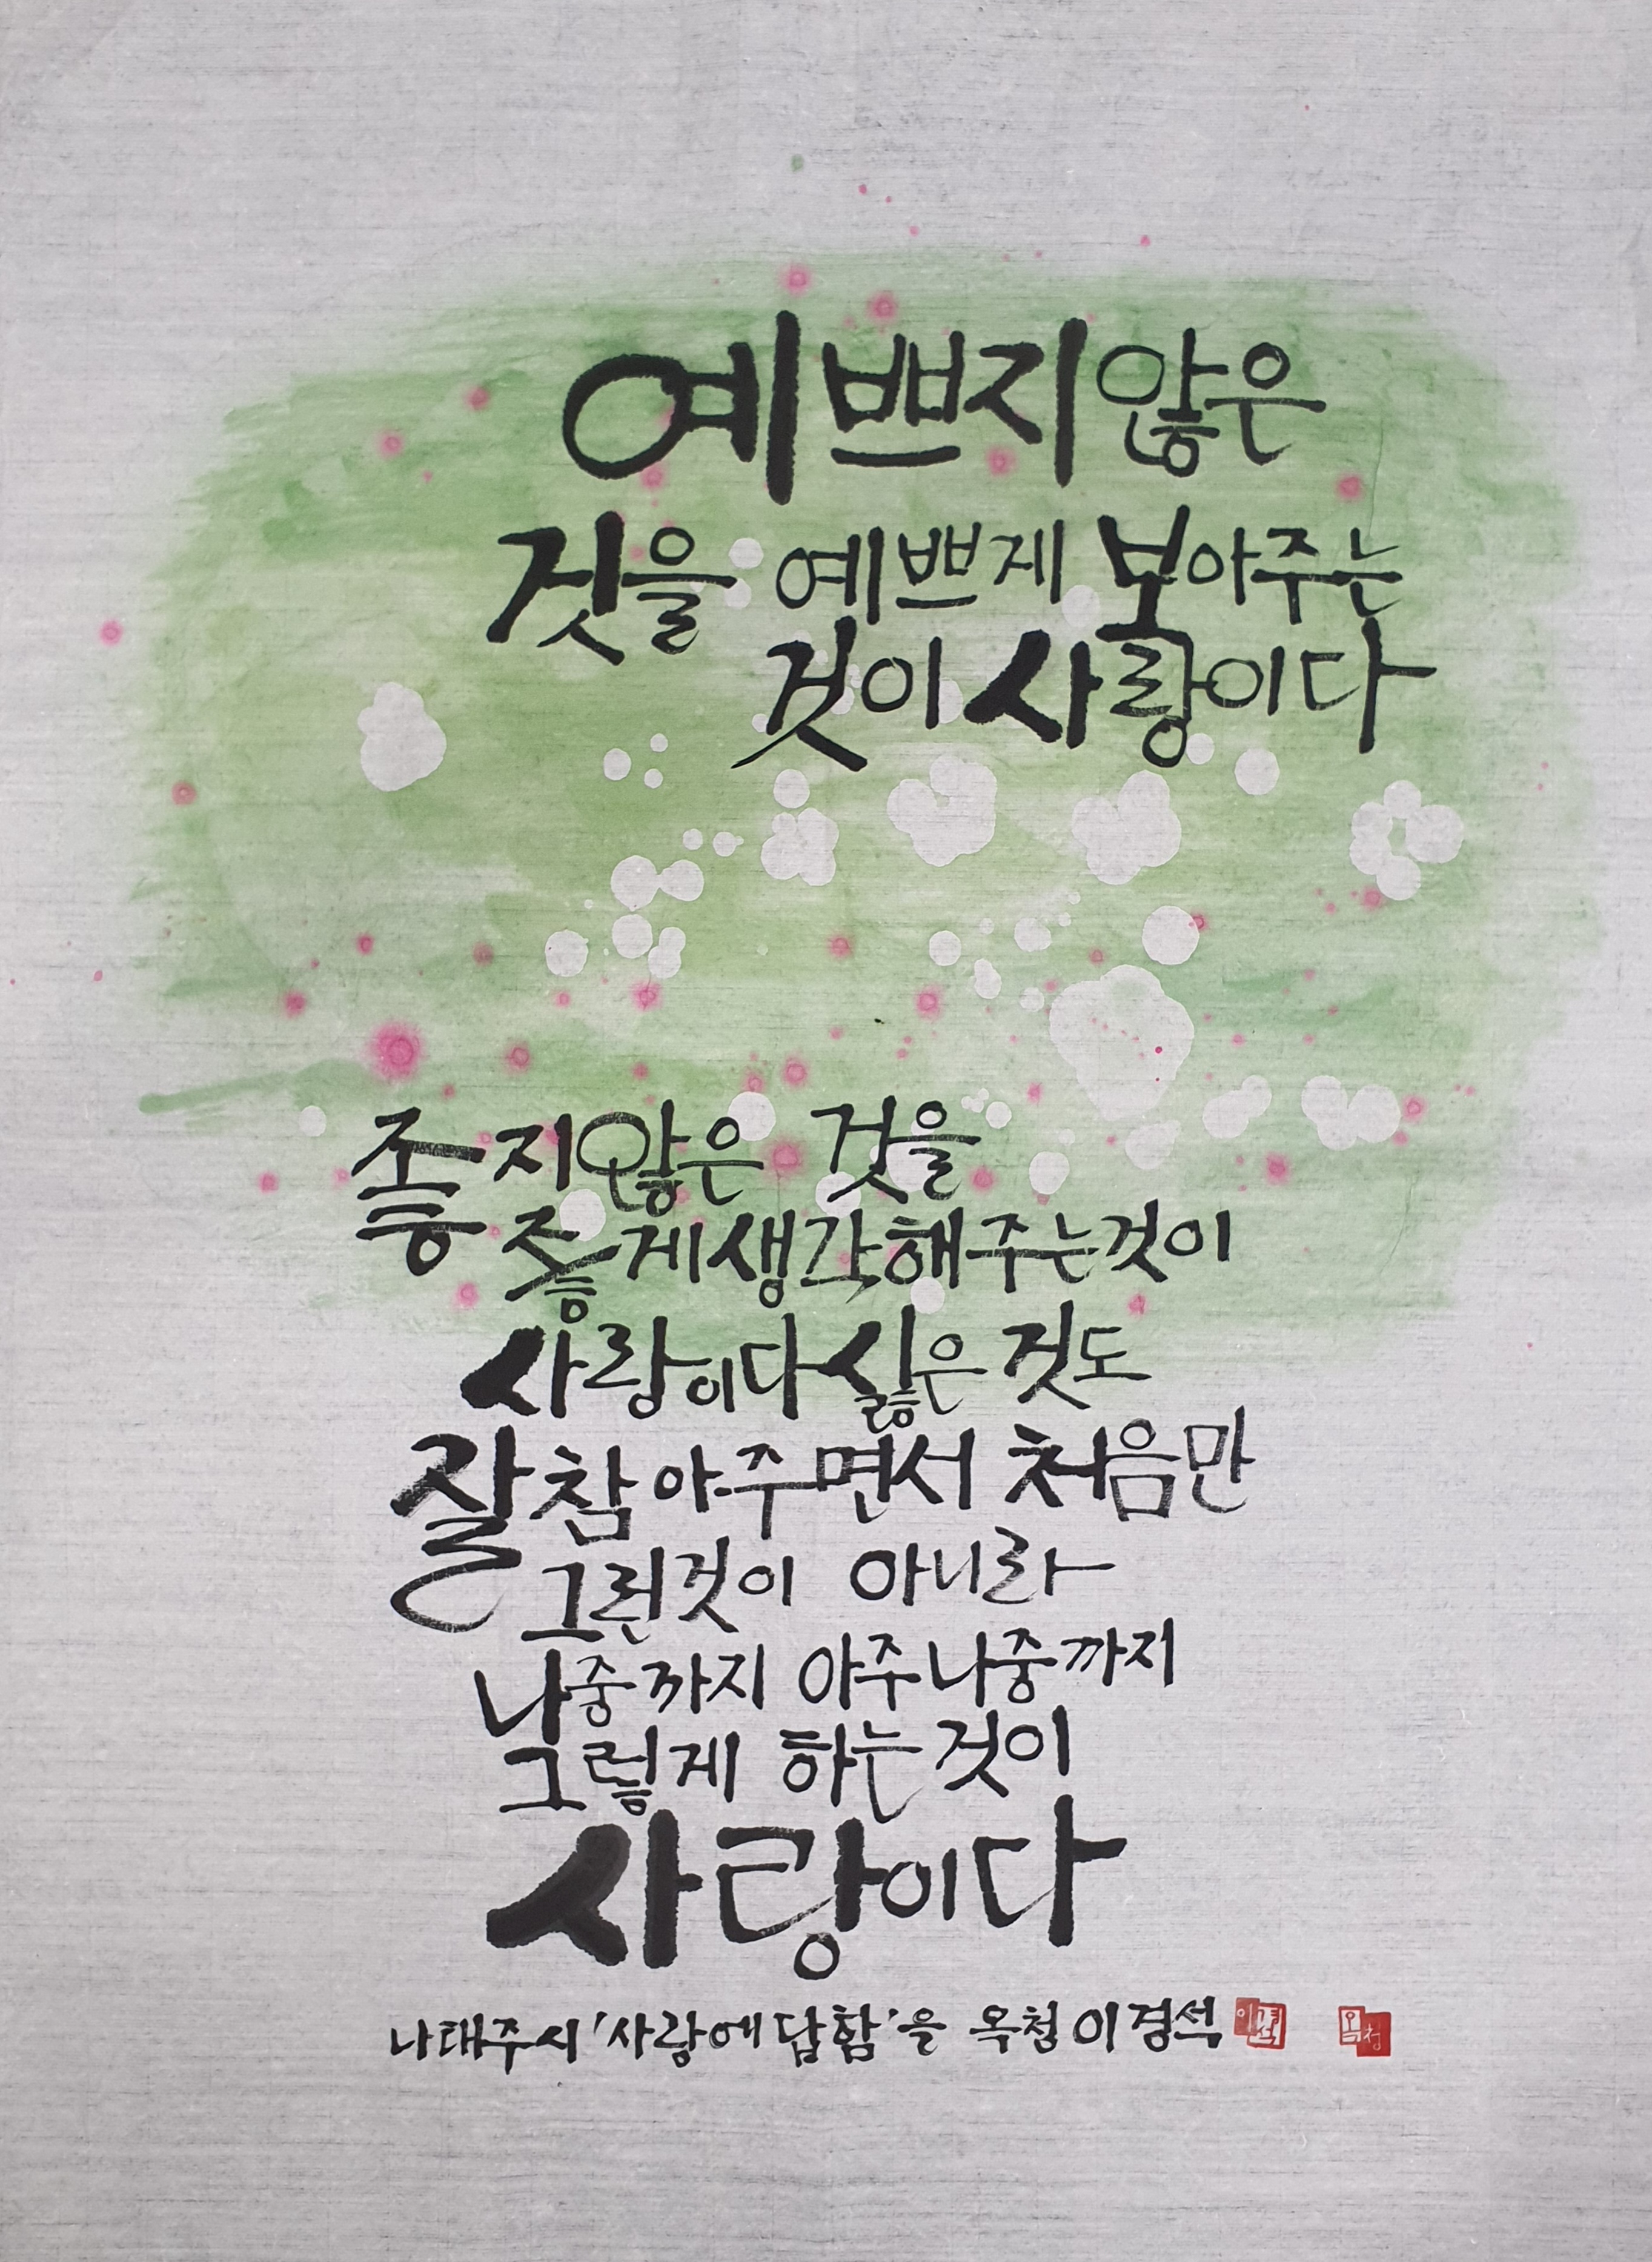 예쁘지 않은
것을 예쁘게 보아주는
것이 사랑이다
좋지않은 것을
좋게생각해주는것이
사랑이다 싫은 것도
잘 참아주면서 처음만
그런것이 아니라
나중까지 아주나중까지
그렇게 하는것이
사랑이다
나태주시 '사랑에답함'을 옥청 이경석
이경석 옥청